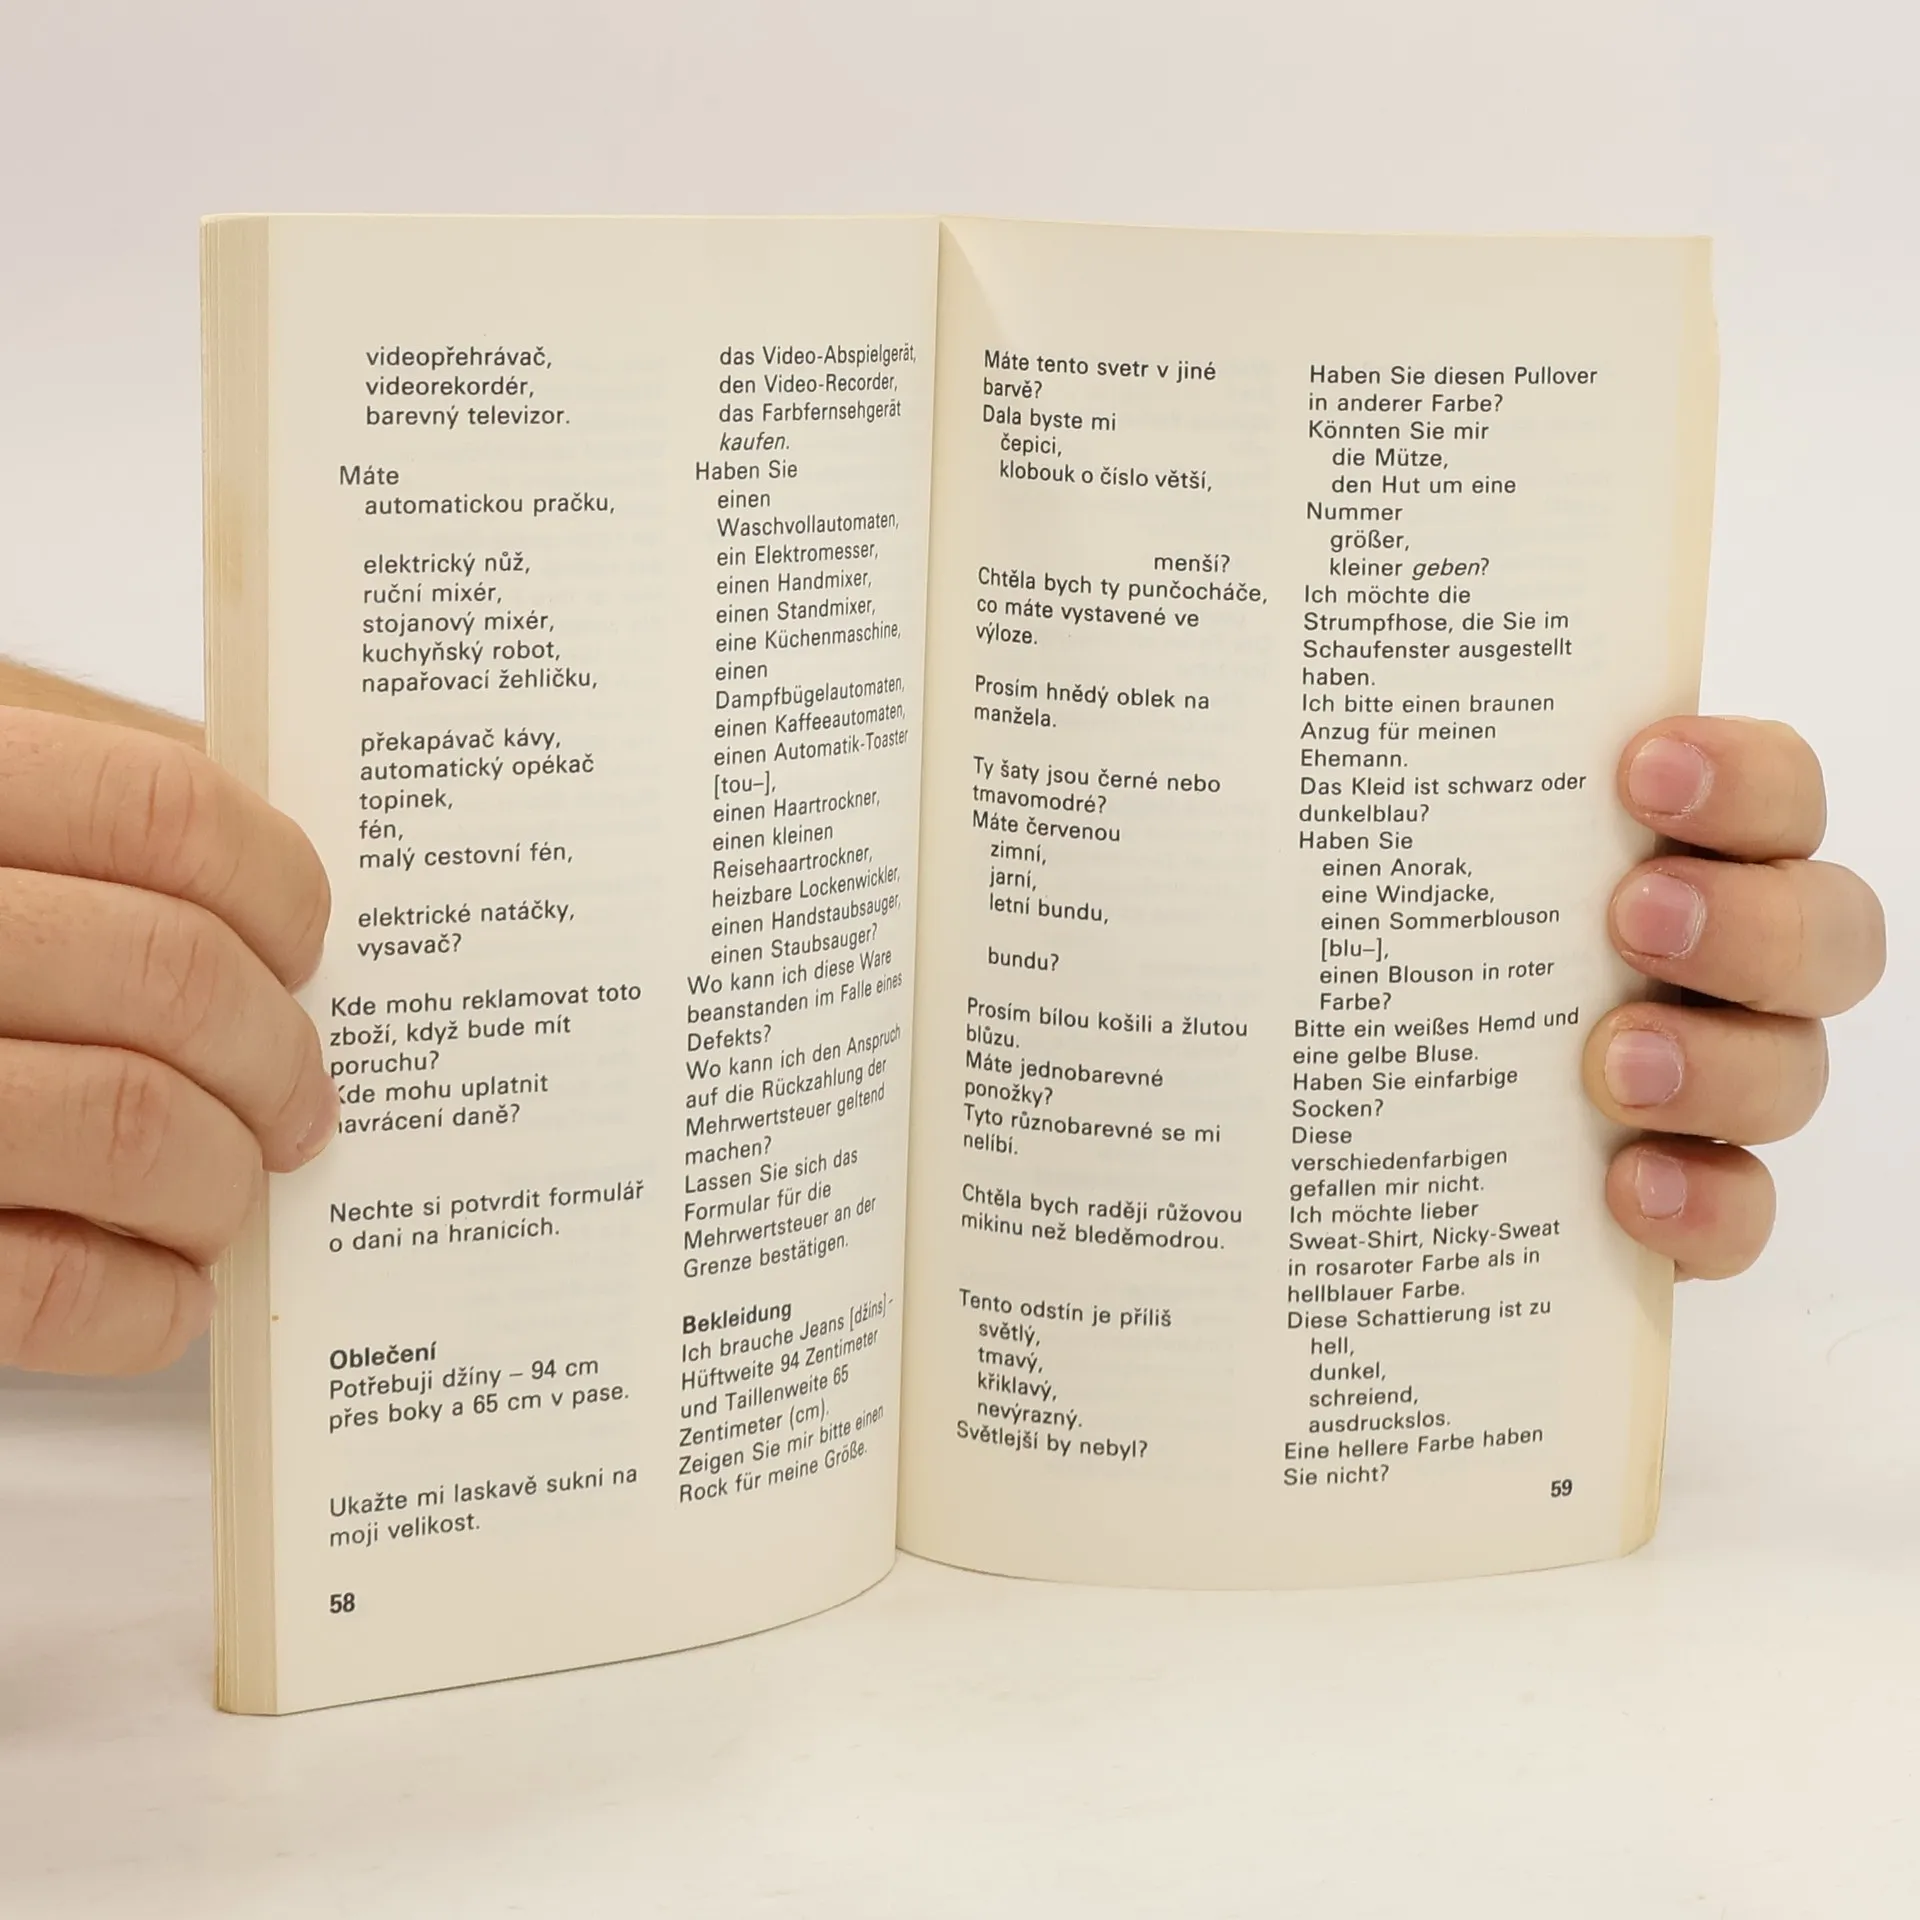 videopřehrávač,
videorekordér,
barevný televizor.
Máte
automatickou pračku,
elektrický nůž,
ruční mixér,
stojanový mixér,
kuchyňský robot,
napařovací žehličku,
překapávač kávy,
automatický opékač
topinek,
fén,
malý cestovní fén,
elektrické natáčky,
vysavač?
Kde mohu reklamovat toto
zboží, když bude mít
poruchu?
Kde mohu uplatnit
navrácení daně?
Nechte si potvrdit formulář
o dani na hranicích.
Oblečení
Potřebuji džíny – 94 cm
přes boky a 65 cm v pase.
Ukažte mi laskavě sukni na
moji velikost.
58
das Video-Abspielgerät,
den Video-Recorder,
das Farbfernsehgerät
kaufen.
Haben Sie
einen
Waschvollautomaten,
ein Elektromesser,
einen Handmixer,
einen Standmixer,
eine Küchenmaschine,
einen
Dampfbügelautomaten,
einen Kaffeeautomaten,
einen Automatik-Toaster
[tou–],
einen Haartrockner,
einen kleinen
Reisehaartrockner,
heizbare Lockenwickler,
einen Handstaubsauger,
einen Staubsauger?
Wo kann ich diese Ware
beanstanden im Falle eines
Defekts?
Wo kann ich den Anspruch
auf die Rückzahlung der
Mehrwertsteuer geltend
machen?
Lassen Sie sich das
Formular für die
Mehrwertsteuer an der
Grenze bestätigen.
Bekleidung
Ich brauche Jeans [džins]-
Hüftweite 94 Zentimeter
und Taillenweite 65
Zentimeter (cm).
Zeigen Sie mir bitte einen
Rock für meine Größe.
Máte tento svetr v jiné
barvě?
Dala byste mi
čepici,
klobouk o číslo větší,
menší?
Chtěla bych ty punčocháče,
co máte vystavené ve
výloze.
Prosím hnědý oblek na
manžela.
Ty šaty jsou černé nebo
tmavomodré?
Máte červenou
zimní,
jarní,
letní bundu,
bundu?
Prosím bílou košili a žlutou
blůzu.
Máte jednobarevné
ponožky?
Tyto různobarevné se mi
nelíbí.
Chtěla bych raději růžovou
mikinu než bleděmodrou.
Tento odstín je příliš
světlý,
tmavý,
křiklavý,
nevýrazný.
Světlejší by nebyl?
Haben Sie diesen Pullover
in anderer Farbe?
Könnten Sie mir
die Mütze,
den Hut um eine
Nummer
größer,
kleiner geben?
Ich möchte die
Strumpfhose, die Sie im
Schaufenster ausgestellt
haben.
Ich bitte einen braunen
Anzug für meinen
Ehemann.
Das Kleid ist schwarz oder
dunkelblau?
Haben Sie
einen Anorak,
eine Windjacke,
einen Sommerblouson
[blu–],
einen Blouson in roter
Farbe?
Bitte ein weißes Hemd und
eine gelbe Bluse.
Haben Sie einfarbige
Socken?
Diese
verschiedenfarbigen
gefallen mir nicht.
Ich möchte lieber
Sweat-Shirt, Nicky-Sweat
in rosaroter Farbe als in
hellblauer Farbe.
Diese Schattierung ist zu
hell,
dunkel,
schreiend,
ausdruckslos.
Eine hellere Farbe haben
Sie nicht?
59